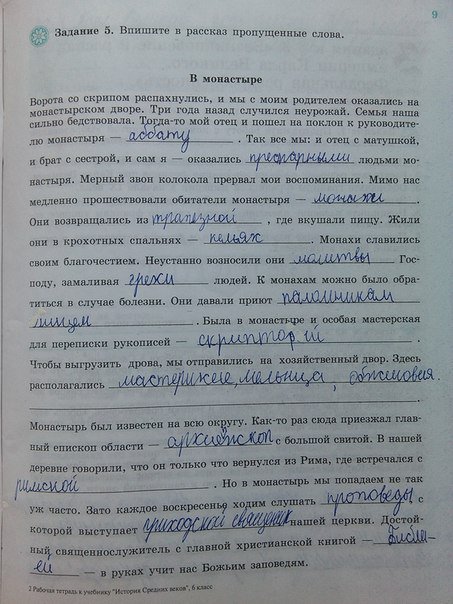 9
Задание 5. Впишите в рассказ пропущенные слова.
В монастыре
Ворота со скрипом распахнулись, и мы с моим родителем оказались на
монастырском дворе. Три года назад случился неурожай. Семья наша
сильно бедствовала. Тогда-то мой отец и пошел на поклон к руководите-
лю монастыря — аббату. Так все мы: и отец с матушкой,
и брат с сестрой, и сам я — оказались преграными людьми мо-
настыря. Мерный звон колокола прервал мои воспоминания. Мимо нас
медленно прошествовали обитатели монастыря — монахи.
Они возвращались из трапезной, где вкушали пищу. Жили
они в крохотных спальнях — кельях. Монахи славились
своим благочестием. Неустанно возносили они молитвы Гос-
поду, замаливая грехи людей. К монахам можно было обра-
титься в случае болезни. Они давали приют паломникам
нищем. Была в монастыре и особая мастерская
для переписки рукописей — скрипторий.
Чтобы выгрузить дрова, мы отправились на хозяйственный двор. Здесь
располагались мастерские, мельница,
Монастырь был известен на всю округу. Как-то раз сюда приезжал глав-
ный епископ области — архиепископ с большой свитой. В нашей
деревне говорили, что он только что вернулся из Рима, где встречался с
римской. Но в монастырь мы попадаем не так
уж часто. Зато каждое воскресенье ходим слушать проповеды с
которой выступает приходской священик нашей церкви. Достой-
ный священнослужитель с главной христианской книгой — Библи-
ей — в руках учит нас Божьим заповедям.
2 Рабочая тетрадь к учебнику "История Средних веков", 6 класс